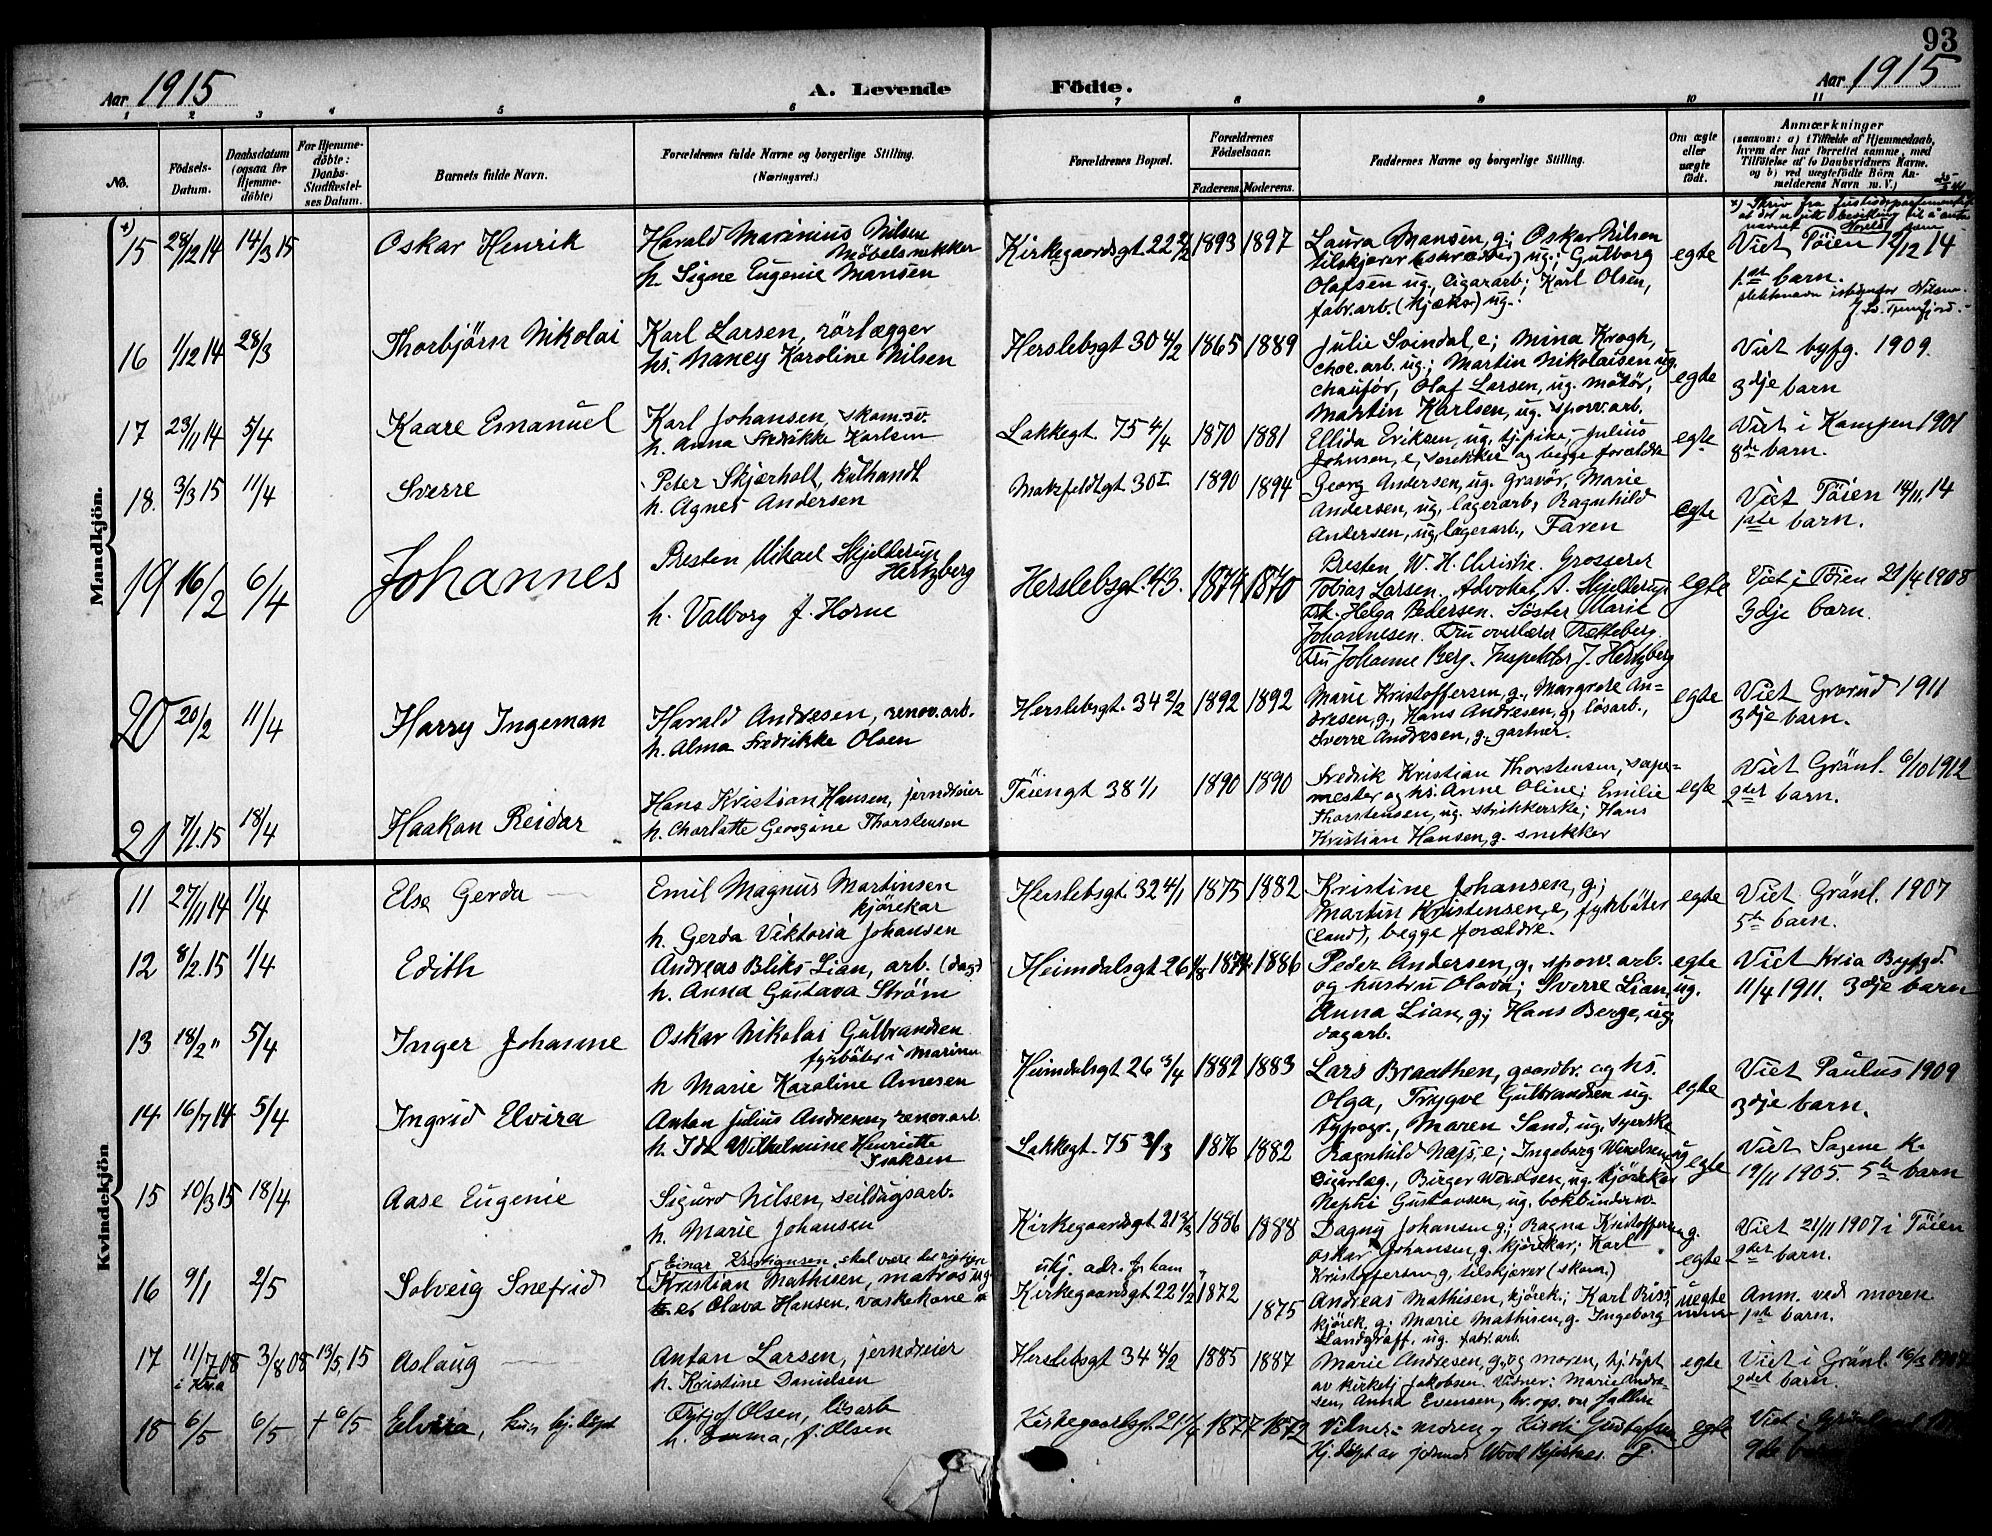 93
Aar 1915
A. Levende Födte.
Aar 1915
1 2 3 4 5 6 7 8 9 10 11
No.
Födsels-Datum.
Daabsdatum (ogsaa for Hjemme-döbte)
For Hjemme-döbte: Daabs-Stadfæstel-ses Datum.
Barnets fulde Navn.
Forældrenes fulde Navne og borgerlige Stilling.
(Næringsvei.)
Forældrenes Bopæl.
Forældrenes Födselsaar.
Faderens. Moderens.
Faddernes Navne og borgerlige Stilling.
Om ægte eller uægte födt.
Anmærkninger
(saasom: a) i Tilfælde af Hjemmedaab, hvem der har forrettet samme, med Tilföielse af to Daabsvidners Navne. og b) ved uægtefödte Börn An-melderens Navn m. V.)
Mandkjön.
15 28/12 14 14/3 15 Oskar Henrik
Harald Marinius Nilsen
Möbelsnekker
h. Signe Eugenie Mansen
Kirkegaardsgt 22 2/2 1893 1897
Laura Mansen, g; Oskar Nilsen
tilskjærer (skræder) ug; Gulborg
Olafsen ug, Cigararb; Karl Olsen,
fabr.arb. (Kjæks) ug.
egte
Viet Töien 12/12 14
1ste barn.
16 1/12 14 28/3 Thorbjörn Nikolai
Karl Larsen, rörlægger
hs. Nancy Karoline Nilsen
Herslebsgt 30 4/2 1865 1889
Julie Svindal e; Mina Krogh,
choc.arb. ug; Martin Nikolausen ug.
chauför, Olaf Larsen, ug. matör,
Martin Karlsen, ug. sporv.arb.
egte
Viet byfg. 1909.
3dje barn
17 23/11 14 5/4 Kaare Emanuel
Karl Johansen, skom.sv.
h. Anna Fredrikke Karlsen
Lakkegt. 75 4/4 1870 1881
Ellida Eriksen, ug. tj.pike, Julius
Johnsen, e, snekker og begge forældre
egte
Viet i Kampen 1901
8de barn.
18. 3/3 15 11/4 Sverre
Peter Skjærholt, kulhandl
h. Agnes Andersen
Markfeldtgt 30 I 1890 1894
Georg Andersen, ug. Gravör, Marie
Andersen, ug, lagerarb, Ragnhild
Andersen, ug, lagerarb, Faren
egte
Viet Töien 14/11 14
1ste barn.
19 16/2 6/4 Johannes
Presten Mikael Skjelderup
Hertzberg
h. Valborg f. Horne
Herslebsgt. 43. 1874 1870
Presten W. H. Christie. Grosserer
Tobias Larsen, Advokat A. Skjelderup
Frk. Helga Pedersen. Söster Marie
Johannesen. Fru overlærer Trætteberg.
Fru Johanne Berg. Inspektör J. Hertzberg
egte
Viet i Töien 21/4 1908
3dje barn.
20 20/2 11/4 Harry Ingeman
Harald Andresen, renov.arb.
h. Alma Fredrikke Olsen
Herslebsgt. 34 2/2 1892 1892
Marie Kristoffersen, g., Margrete An=
dresen, g, Hans Andresen, g, lösarb.,
Sverre Andresen, g. gartner.
egte
Viet Grorud 1911
3dje barn.
21 7/1.15 18/4 Haakon Reidar
Hans Kristian Hansen, jerndreier
h. Charlotte Georgine Thorstensen
Töiengt 38 1/1 1890 1890
Fredrik Kristian Thorstensen, sæpe-
mester og hs. Anne Oline; Emilie
Thorstensen, ug. strikkerske; Hans
Kristian Hansen, g. snekker
egte
Viet Grönl. 6/10 1912
2det barn.
Kvindekjön
11 27/11 14 1/4 Else Gerda
Emil Magnus Martinsen
kjörekar
h. Gerda Viktoria Johansen
Herslebsgt 32 4/1 1875 1882
Kristine Johansen, g;
Martin Kristensen, e, fyrböter
(land), begge forældre.
egte
Viet Grönl. 1907
5te barn.
12 8/2.15 1/4 Edith
Andreas Bliks Lian, arb. (dag)
h. Anna Gustava Ström
Heimdalsgt 26 1874 1886
Peder Andersen, g, sporv.arb.
og hustru Olava; Sverre Lian, ug.
Anna Lian, g; Hans Berge, ug,
dagarb.
egte
Viet Kria Byfgd.
11/4 1911. 3dje barn
13 18/2 " 5/4 Inger Johanne
Oskar Nikolai Gulbrandsen
fyrböter i Marinen
h Marie Karoline Arnesen
Heimdalsgt 26 3/4 1882 1883
Lars Braathen, gaardbr. og hs.
Olga, Trygve Gulbrandsen ug.
typogr., Maren Sand, ug, syerske
egte
Viet Paulus 1909
3dje barn.
14 16/7 14 5/4 Ingrid Elvira
Anton Julius Andresen, renov.arb.
h. Ida Wilhelmine Henriette
Isaksen
Lakkegt. 75 3/3 1876 1882
Ragnhild Næss, e; Ingeborg Wendelsen ug
Cigarlag., Birger Wendsen, ug. kjörekar
Nephi Gustavsen, ug. bokbindersv.
egte
Viet Sagene K.
19/11 1905. 5te barn
15 10/3 15 18/4 Aase Eugenie
Sigurd Nilsen, seildugsarb.
h. Marie Johansen
Kirkegaardsgt 21 3/3 1886 1888
Dagny Johansen g; Ragna Kristoffersen g.
Oskar Johansen, g. kjörekar; Karl
Kristoffersen g, tilskjærer (skom.)
egte
Viet 21/11 1907 i Töien
2det barn.
16 9/1 2/5 Solveig Snefrid
Einar Kristiansen, skal være det rigtige
Kristian Mathisen, matros ug
Olava Hansen, vaskekone
ukj. adr. for ham
Kirkegaardsgt 22 1/2 1872 1875
Andreas Mathisen, kjörek.; Karl Riss,
kjörek. g; Marie Mathisen, g. Ingeborg
Landgraff, ug. fabr.arb.
uegte
Anm. ved moren
1ste barn.
17 11/7 08 3/8 08 13/5, 15 Aslaug
i Kria
Anton Larsen, jerndreier
h. Kristine Danielsen
Herslebsgt 34 4/2 1885 1887
Marie Andresen, g, og moren, hj. döpt
av kirketj Jakobsen. Vidner: Marie Andre-
sen, Anna Evensen,
egte
Viet i Grönl. 16/3 1907
2det barn.
18 6/5 6/5 † 6/5 Elvira, kun hj. döpt
Fritjof Olsen, lösarb
h. Emma, f. Olsen
Kirkegaardsgt. 21 1877 1872
Vidner: moren og Gustafsen
hj. döpt av
egte
Viet i Grönland
9de barn